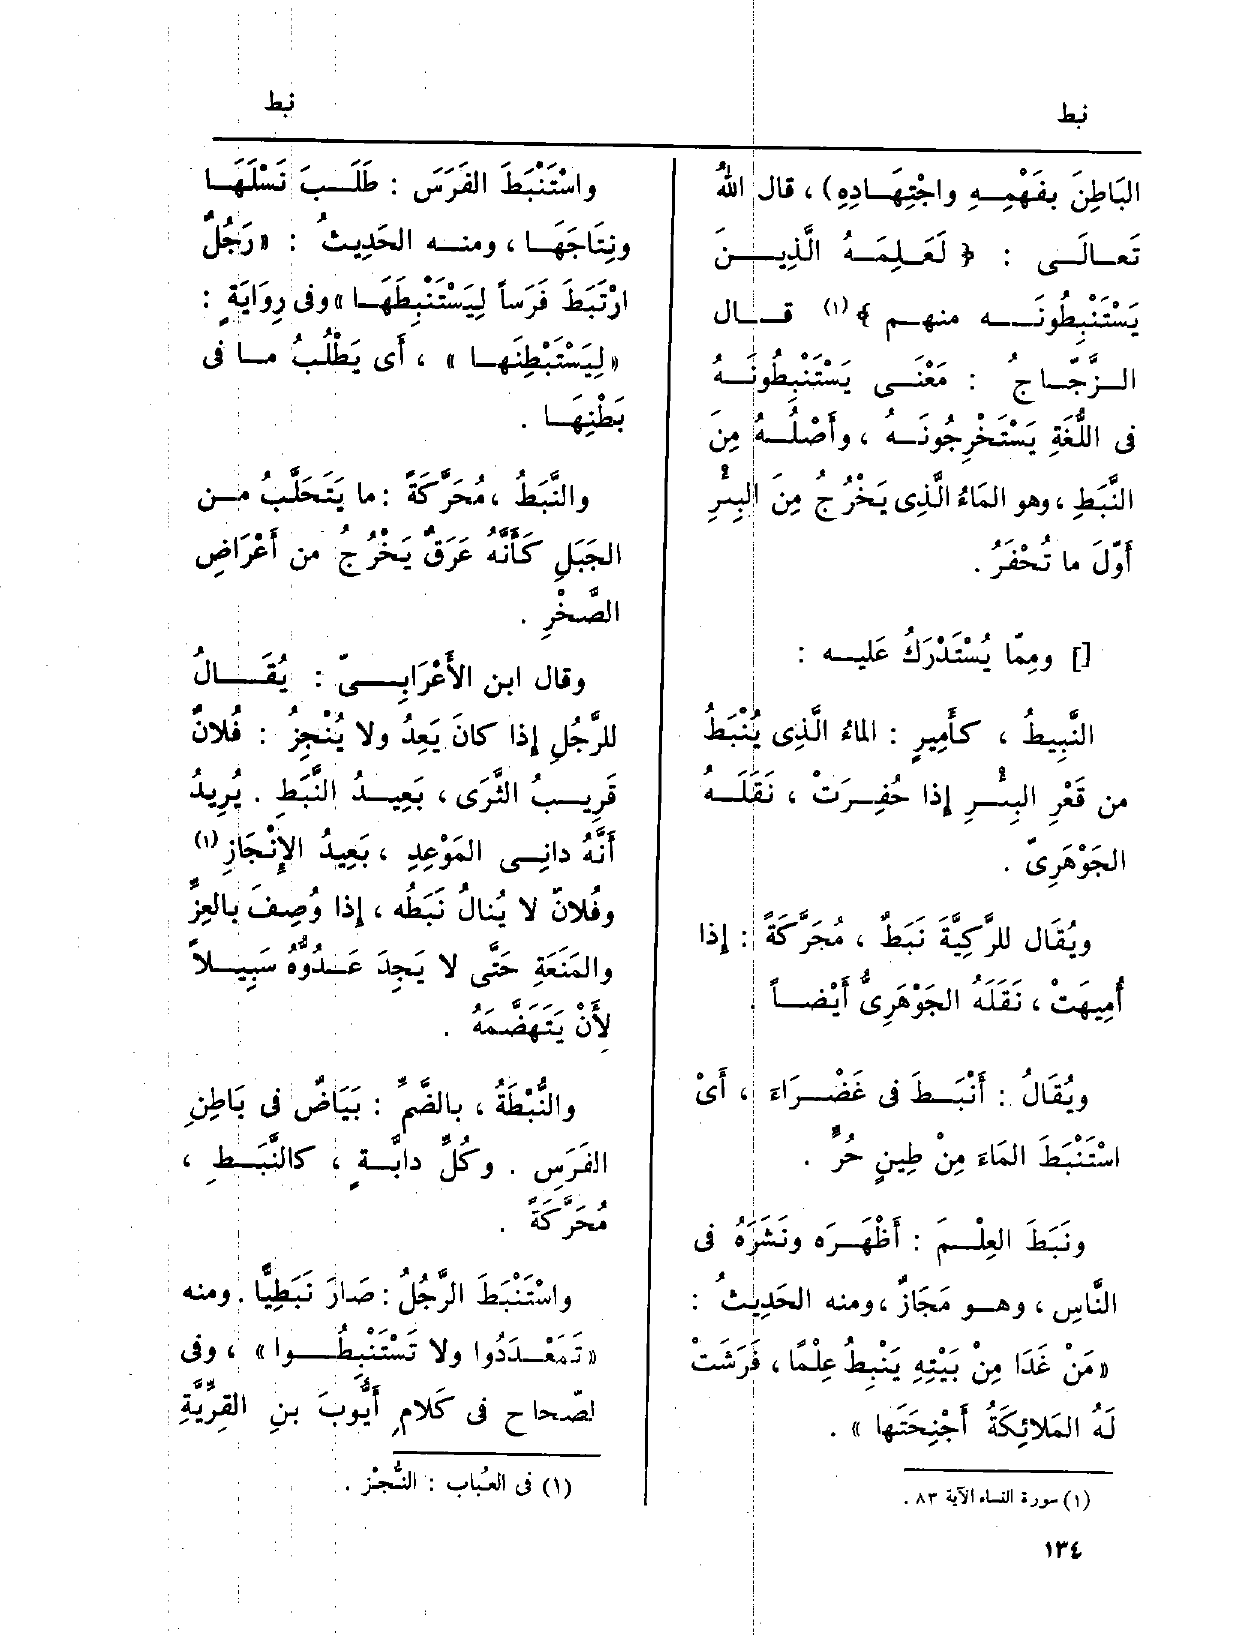 نبط
نبط
البَاطِنَ بفَهْمِهِ واجْتِهَادِهِ) ، قال اللهُ
تَعالَى : ﴿ لَعَلِمَهُ الَّذِينَ
يَسْتَنْبِطُونَه منهم ﴾ (١) قال
الزَّجّاجُ : مَعْنَى يَسْتَنْبِطُونَهُ
فى اللُّغَةِ يَسْتَخْرِجُونَهُ ، وأَصْلُهُ مِنَ
النَّبَطِ ، وهو المَاءُ الَّذِى يَخْرُجُ مِنَ البِئْرِ
أَوّلَ ما تُحْفَرُ .
[] ومِمّا يُسْتَدْرَكُ عَليه :
النَّبِيطُ ، كأَمِيرٍ : الماءُ الَّذِى يُنْبَطُ
من قَعْرِ البِئْرِ إِذا حُفِرَتْ ، نَقَلَهُ
الجَوْهَرِىّ .
ويُقَال للرَّكِيَّةَ نَبَطٌ ، مُحَرَّكَةً : إِذا
أُمِيهَتْ ، نَقَلَهُ الجَوْهَرِىُّ أَيْضاً .
ويُقَالُ : أَنْبَطَ فى غَضْرَاءَ ، أَىْ
اسْتَنْبَطَ المَاءَ مِنْ طِينٍ حُرٍّ .
ونَبَطَ العِلْمَ : أَظْهَرَه ونَشَرَهُ فى
النَّاسِ ، وهو مَجَازٌ ، ومنه الحَدِيثُ :
« مَنْ غَدَا مِنْ بَيْتِهِ يَنْبِطُ عِلْمًا ، فَرَشَتْ
لَهُ المَلائِكَةُ أَجْنِحَتَها » .
(١) سورة النساء الآية ٨٣ .
واسْتَنْبَطَ الفَرَسَ : طَلَبَ نَسْلَهَا
ونِتَاجَهَا ، ومنه الحَدِيثُ : « رَجُلٌ
ارْتَبَطَ فَرَساً لِيَسْتَنْبِطَهَا » وفى رِوَايَةٍ :
« لِيَسْتَبْطِنَها » ، أَى يَطْلُبُ ما فى
بَطْنِهَا .
والنَّبَطُ ، مُحَرَّكَةً : ما يَتَحَلَّبُ من
الجَبَلِ كَأَنَّهُ عَرَقٌ يَخْرُجُ من أَعْرَاضِ
الصَّخْرِ .
وقال ابن الأَعْرَابِىّ : يُقَالُ
للرَّجُلِ إِذا كانَ يَعِدُ ولا يُنْجِزُ : فُلانٌ
قَرِيبُ الثَّرَى ، بَعِيدُ النَّبَطِ . يُرِيدُ
أَنَّهُ دانِى المَوْعِدِ ، بَعِيدُ الإِنْجَازِ (١)
وفُلانٌ لا يُنالُ نَبَطُه ، إِذا وُصِفَ بالعِزِّ
والمَنَعَةِ حَتَّى لا يَجِدَ عَدُوُّهُ سَبِيلاً
لِأَنْ يَتَهَضَّمَهُ .
والنُّبْطَةُ ، بالضَّمِّ : بَيَاضٌ فى بَاطِنِ
الفَرَسِ . وكُلِّ دابَّةٍ ، كالنَّبَطِ ،
مُحَرَّكَةً .
واسْتَنْبَطَ الرَّجُلُ : صَارَ نَبَطِيًّا . ومنه
« تَمَعْدَدُوا ولا تَسْتَنْبِطُوا » ، وفى
لصّحاح فى كَلامِ أَيُّوبَ بنِ القِرِّيَّةِ
(١) فى العُباب : النُّجْز .
١٣٤